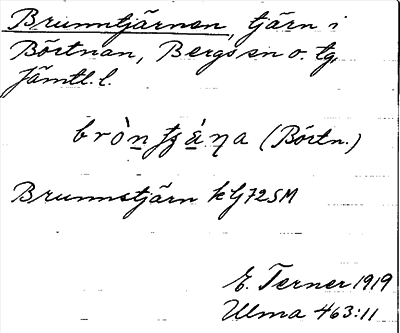 Brunntjärnen, tjärn i
Börtnan, Bergs sn o. tg,
Jämtl. l.
(Börtn.)
Brunnstjärn kG72SM
E. Terner 1919
Ulma 463:11